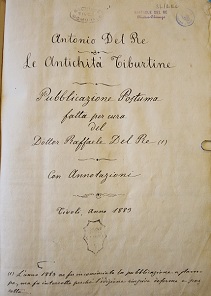 Antonio Del Re
Le Antichità Tiburtine
Pubblicazione Postuma
fatta per cura
del
Dottor Raffaele Del Re (1)
Con Annotazione
Tivoli, Anno 1883
(1) L'anno 1883 ne fu incominciata la pubblicazione a stampa,
ma fu interrotta perchè